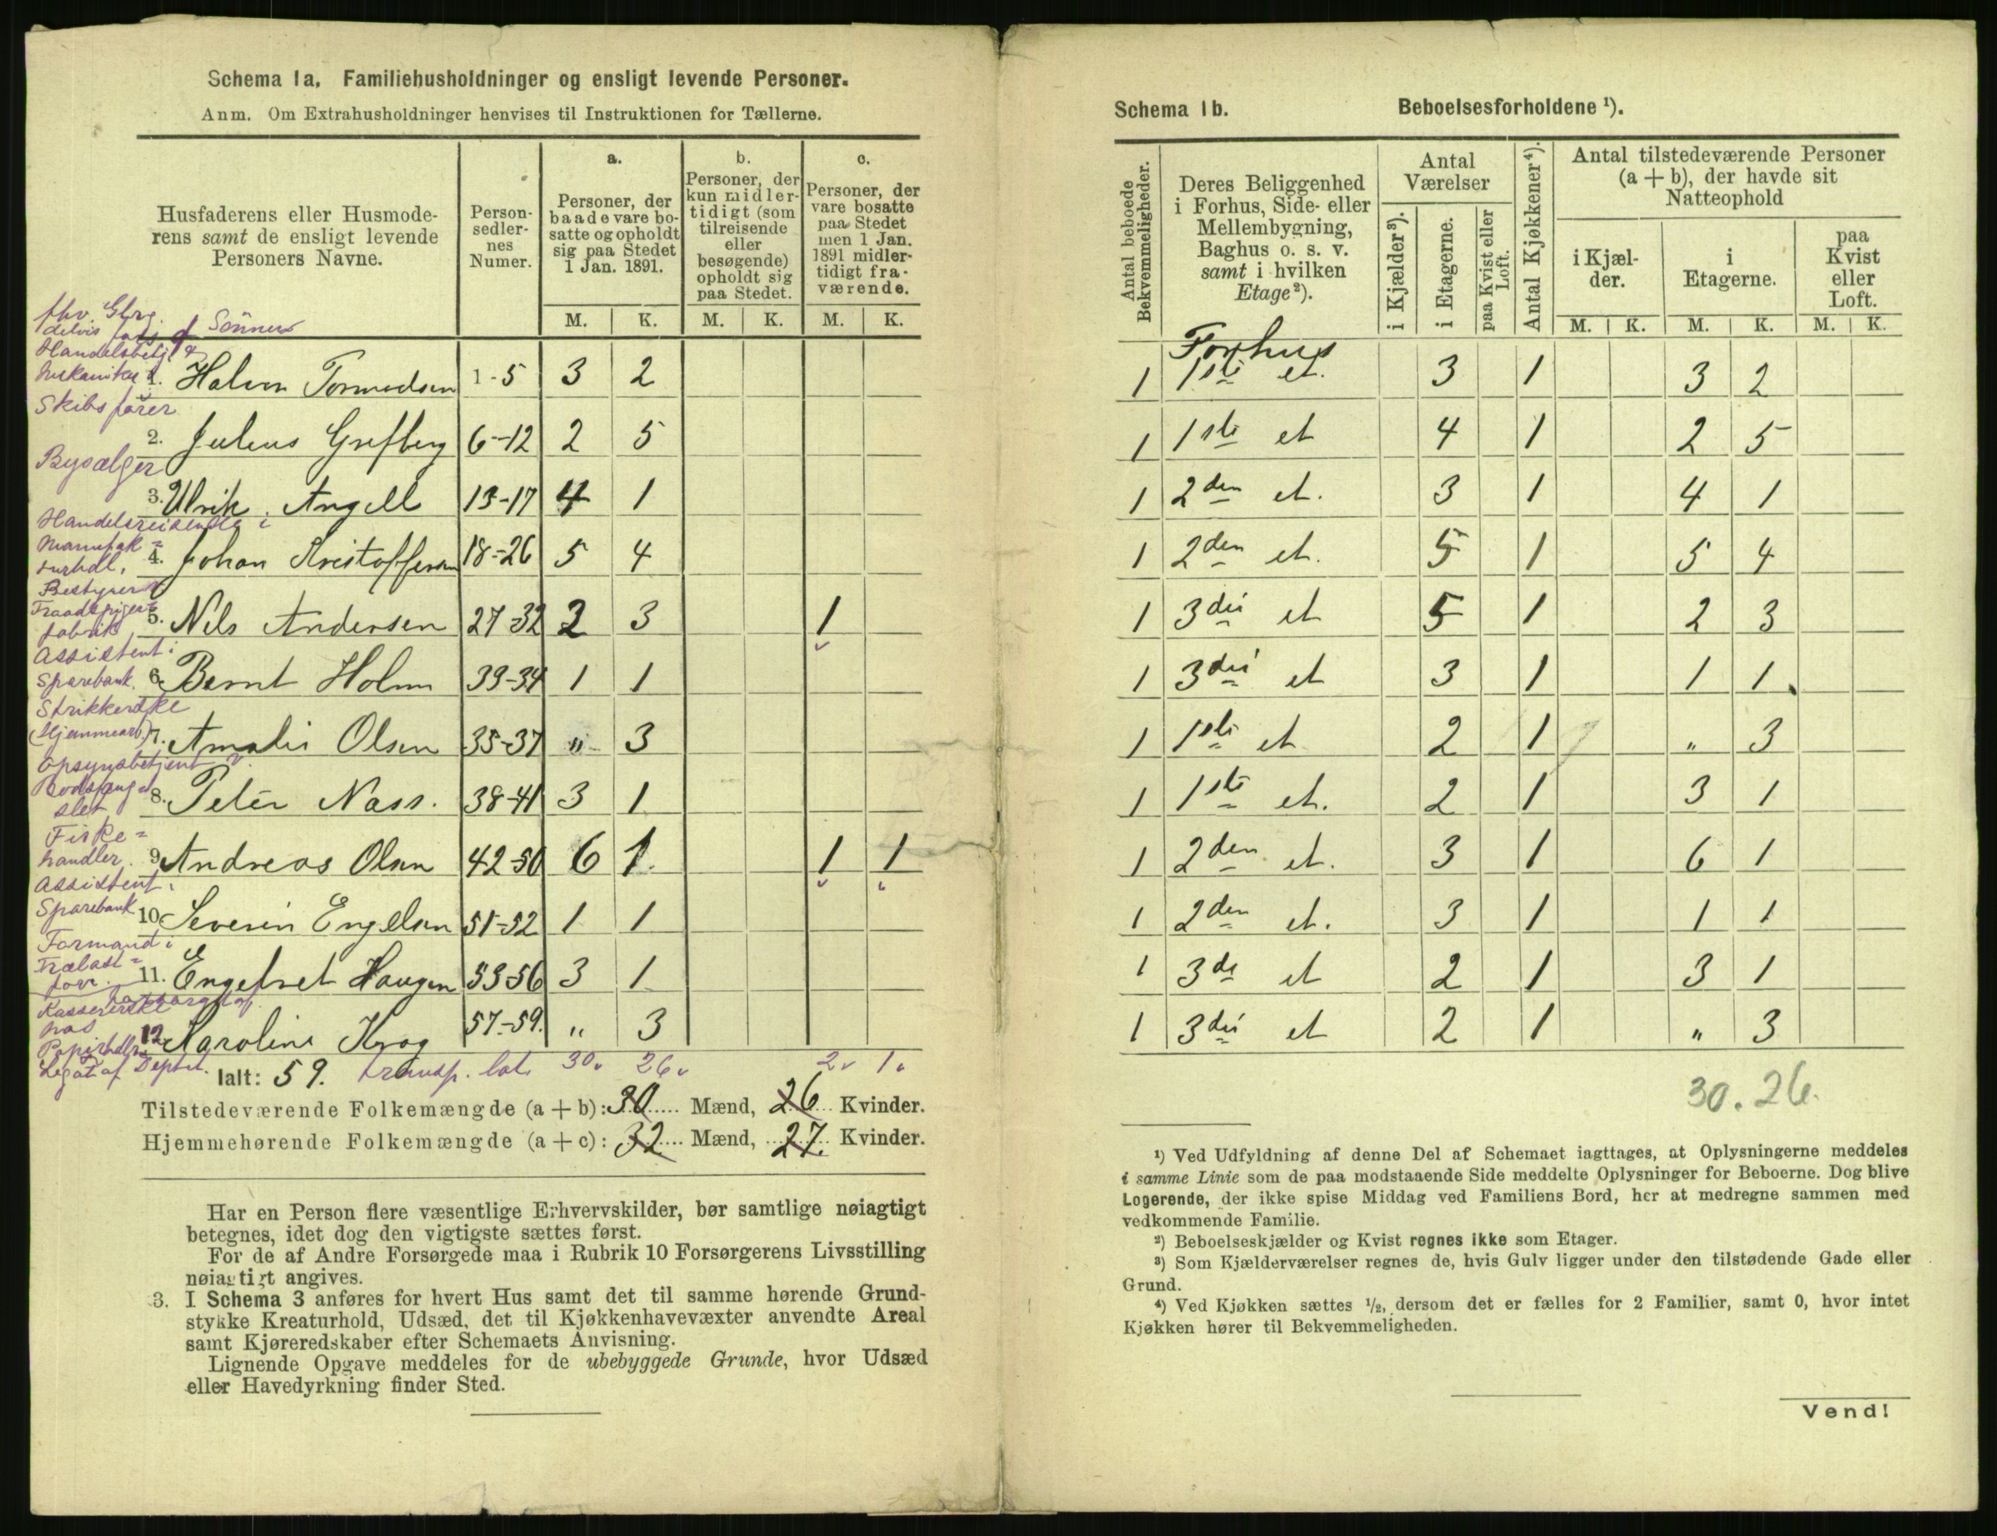 Schema 1a. Familiehusholdninger og ensligt levende Personer.
Anm. Om Extrahusholdninger henvises til Instruktionen for Tællerne.
Husfaderens eller Husmode-
rens samt de ensligt levende
Personers Navne.
Person-
sedler-
nes
Numer.
a.
Personer, der
baade vare bo-
satte og opholdt
sig paa Stedet
1 Jan. 1891.
b.
Personer, der
kun midler-
tidigt (som
tilreisende
eller
besøgende)
opholdt sig
paa Stedet.
c.
Personer, der
vare bosatte
paa Stedet
men 1 Jan.
1891 midler-
tidigt fra-
værende.
M. K. M. K. M. K.
fhv. Gbrg.
Sönner
Handelsbetj.
1. Halvor Tormodsen 1-5 3 2
Skibsfører
2. Julius Grefberg 6-12 2 5
Bysælger
3. Ulrik Angell 13-17 4 1
Handelsreisende i
4. Johan Kristoffersen 18-26 5 4
Bestyrer
fabrik
5. Nils Andersen 27-32 2 3 1
Assistent i
Sparebank
6. Bernt Holm 33-34 1 1
Strikkerske
(Hjemmearb.)
7. Amalie Olsen 35-37 „ 3
Opsynsbetjent v.
Bodsfæng-
slet
8. Peter Nass. 38-41 3 1
Fiske=
handler.
9. Andreas Olsen 42-50 6 1 1 1
Assistent i
Sparebank
10. Severin Engelsen 51-52 1 1
Formand i
Trælast=
forr.
11. Engebret Haugen 53-56 3 1
Kassererske
hos
Papirhdlr.
12. Karoline Krog 57-59. „ 3
Legat af Deptet.
Ialt: 59. transp. lat. 30. 26. 2. 1.
Tilstedeværende Folkemængde (a + b): 30 Mænd, 26 Kvinder.
Hjemmehørende Folkemængde (a + c): 32 Mænd, 27. Kvinder.
Har en Person flere væsentlige Erhvervskilder, bør samtlige nøiagtigt
betegnes, idet dog den vigtigste sættes først.
For de af Andre Forsørgede maa i Rubrik 10 Forsørgerens Livsstilling
nøiagtigt angives.
3. I Schema 3 anføres for hvert Hus samt det til samme hørende Grund-
stykke Kreaturhold, Udsæd, det til Kjøkkenhavevæxter anvendte Areal
samt Kjøreredskaber efter Schemaets Anvisning.
Lignende Opgave meddeles for de ubebyggede Grunde, hvor Udsæd
eller Havedyrkning finder Sted.
Schema 1b. Beboelsesforholdene ¹).
Antal beboede
Bekvemmeligheder.
Deres Beliggenhed
i Forhus, Side- eller
Mellembygning,
Baghus o. s. v.
samt i hvilken
Etage²).
Antal
Værelser
i Kjælder³).
i Etagerne.
paa Kvist eller
Loft.
Antal Kjøkkener⁴).
Antal tilstedeværende Personer
(a + b), der havde sit
Natteophold
i Kjæl-
der.
i
Etagerne.
paa
Kvist
eller
Loft.
M. K. M. K. M. K.
Forhus
1 1ste et. 3 1 3 2
1 1ste et 4 1 2 5
1 2den et. 3 1 4 1
1 2den et. 5 1 5 4
1 3die et 5 1 2 3
1 3die et 3 1 1 1
1 1ste et 2 1 „ 3
1 1ste et. 2 1 3 1
1 2den et. 3 1 6 1
1 2den et. 3 1 1 1
1 3de et 2 1 3 1
1 3die et 2 1 „ 3
30. 26.
¹) Ved Udfyldning af denne Del af Schemaet iagttages, at Oplysningerne meddeles
i samme Linie som de paa modstaaende Side meddelte Oplysninger for Beboerne. Dog blive
Logerende, der ikke spise Middag ved Familiens Bord, her at medregne sammen med
vedkommende Familie.
²) Beboelseskjælder og Kvist regnes ikke som Etager.
³) Som Kjælderværelser regnes de, hvis Gulv ligger under den tilstødende Gade eller
Grund.
⁴) Ved Kjøkken sættes ½, dersom det er fælles for 2 Familier, samt 0, hvor intet
Kjøkken hører til Bekvemmeligheden.
Vend!